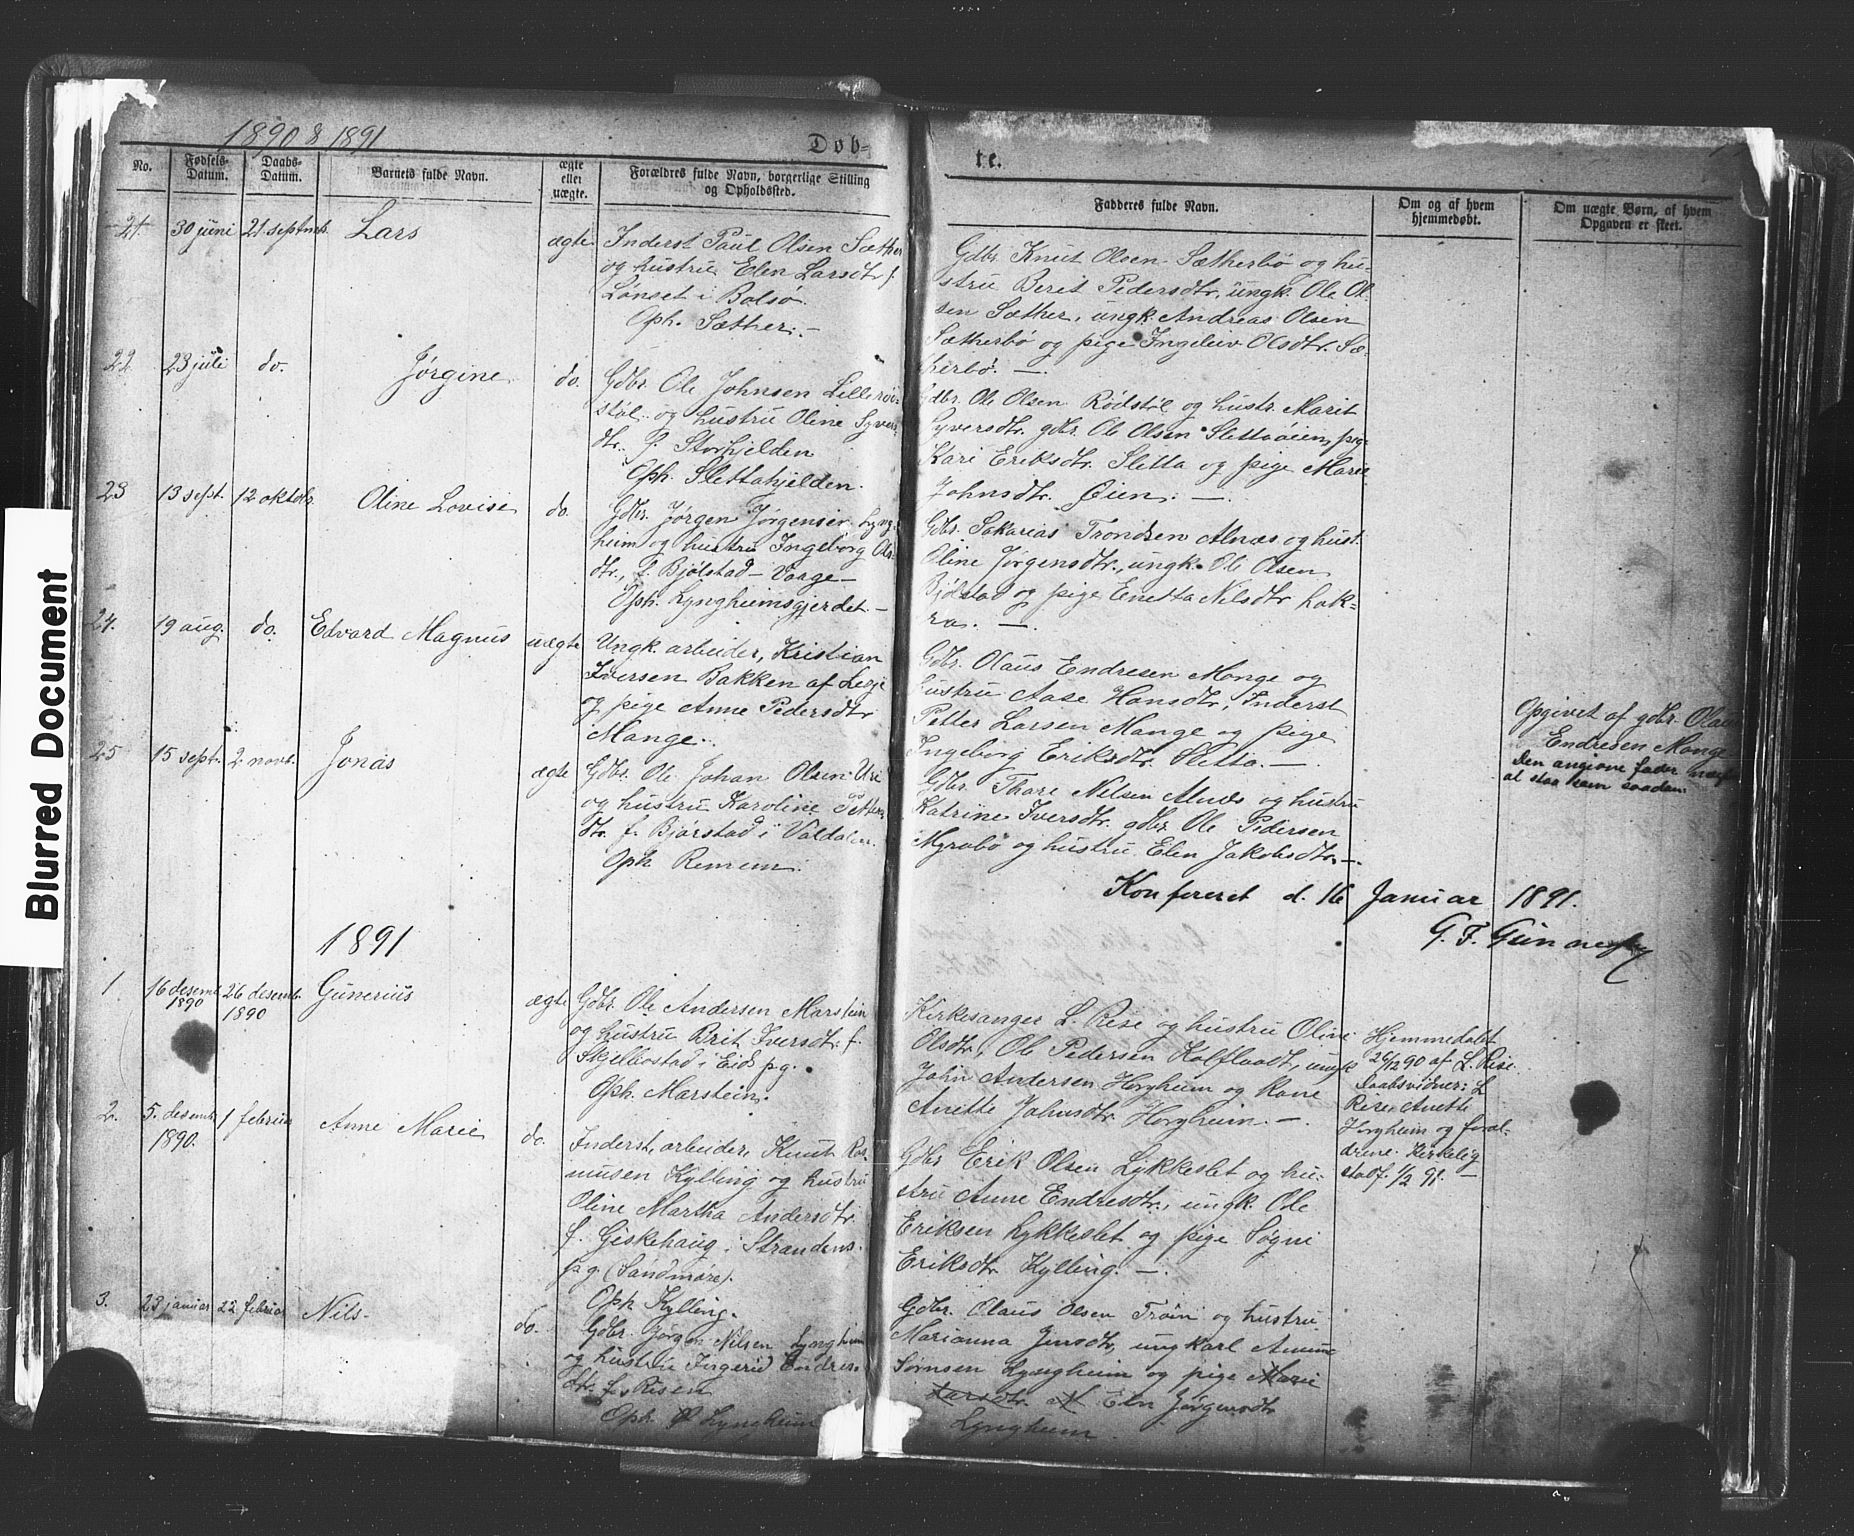 1890 & 1891
Døb-
te.
No.
Fødsels-
Datum.
Daabs-
Datum.
Barnets fulde Navn.
ægte
eller
uægte.
Forældres fulde Navn, borgerlige Stilling
og Opholdssted.
Fadderes fulde Navn.
Om og af hvem
hjemmedøbt.
Om uægte Børn, af hvem
Opgaven er skeet.
21. 30 juni 21. septmbr. Lars ægte
Inderst Paul Olsen Sæther
og hustru Elen Larsdtr. f.
Lønset i Bolsø.
Oph. Sæther. –
Gdbr. Knut Olsen Sætherbø og hu-
stru Berit Pedersdtr., ungk. Ole Ol-
sen Sæther, ungk. Andreas Olsen
Sætherbø og pige Ingeleiv Olsdtr. Sæ-
therbø. –
22 23 juli do. Jørgine do.
Gdbr. Ole Johnsen Lillerød-
støl og hustru Oline Syvers-
dtr. f. Storhjelden
Oph. Slettahjelden.
Gdbr. Ole Olsen Rødstøl og hustr. Marit
Syversdtr. gdbr. Ole Olsen Slettaøien, pige
Kari Eriksdtr. Sletta og pige Marie
Johnsdtr. Øien. –
23 13 sept. 12 oktobr. Oline Lovise do.
Gdbr. Jørgen Jørgensen Lyng-
heim og hustru Ingeborg Ols-
dtr., f. Bjølstad – Vaage –
Oph. Lyngheimsgjerdet. –
Gdbr. Sakarias Trondsen Alnæs og hust.
Oline Jørgensdtr., ungk. Ole Olsen
Bjølstad og pige Enetta Nilsdtr.
24. 19 aug. do. Edvard Magnus uægte
Ungk. arbeider, Kristian
Iversen Bakken af Lesje
og pige Anne Pedersdtr
Mange.
Gdbr. Olaus Endresen Monge og
hustru Aase Hansdtr., Inderst
Petter Larsen Mange og pige
Ingeborg Eriksdtr. Sletta. –
Opgivet af gdbr. Olaus
Endresen Monge
Den angivne fader
at staa som saadan.
25 15 sept. 2 novbr. Jonas ægte
Gdbr. Ole Johan Olsen Uri
og hustru Karoline Petters-
dtr. f. Bjørstad i Valdalen.
Oph. Remmem.
Gdbr. Thore Nilsen Alnæs og hustru
Katrine Iversdtr. gdbr. Ole Pedersen
Myrabø og hustru Elen Jakobsdtr. –
Konfereret d. 16 Januar 1891.
G. F.
1891
1. 16 desemb. 1890 26 desemb. 1890 Gunerius ægte
Gdbr. Ole Andersen Marstein
og hustru Brit Iversdtr. f.
Skjelbostad i Eids pg.
Oph. Marstein.
Kirkesanger L. Rise og hustru Oline
Olsdtr., Ole Pedersen Kalfloadt, ungk
John Andersen Horgheim og Kone
Anette Johnsdtr. Horgheim. –
Hjemmedøbt
26/12 90 af L. Rise
Daabsvidner: L
Rise, Anette
Horgheim og foræl-
drene. Kirkelig
stadf. 1/2 91. –
2. 5. desemb. 1890. 1 februar Anne Marie do.
Inderst, arbeider, Knut Ras-
mussen Kylling og hustru
Oline Martha Andersdtr.
f. Giskehaug i Strandens
pg. (Søndmøre).
Oph. Kylling.
Gdbr Erik Olsen Lykkeslet og hu-
stru Anne Endresdtr., ungk. Ole
Eriksen Lykkeslet og pige Søgni
Eriksdtr. Kylling. –
3. 23 januar 22 februar Nils. do.
Gdbr. Jørgen Nilsen Lyngheim
og hustru Ingerid Endres-
dtr. f. Risen
Oph. Lyngheim
Gdbr. Olaus Olsen Trøen og hustru
Marianna Jensdtr, ungkarl Amun
Sørnsen Lyngheim og pige Marie
Larsdtr. Elen Jørgensdtr
Lyngheim.
Blurred Document